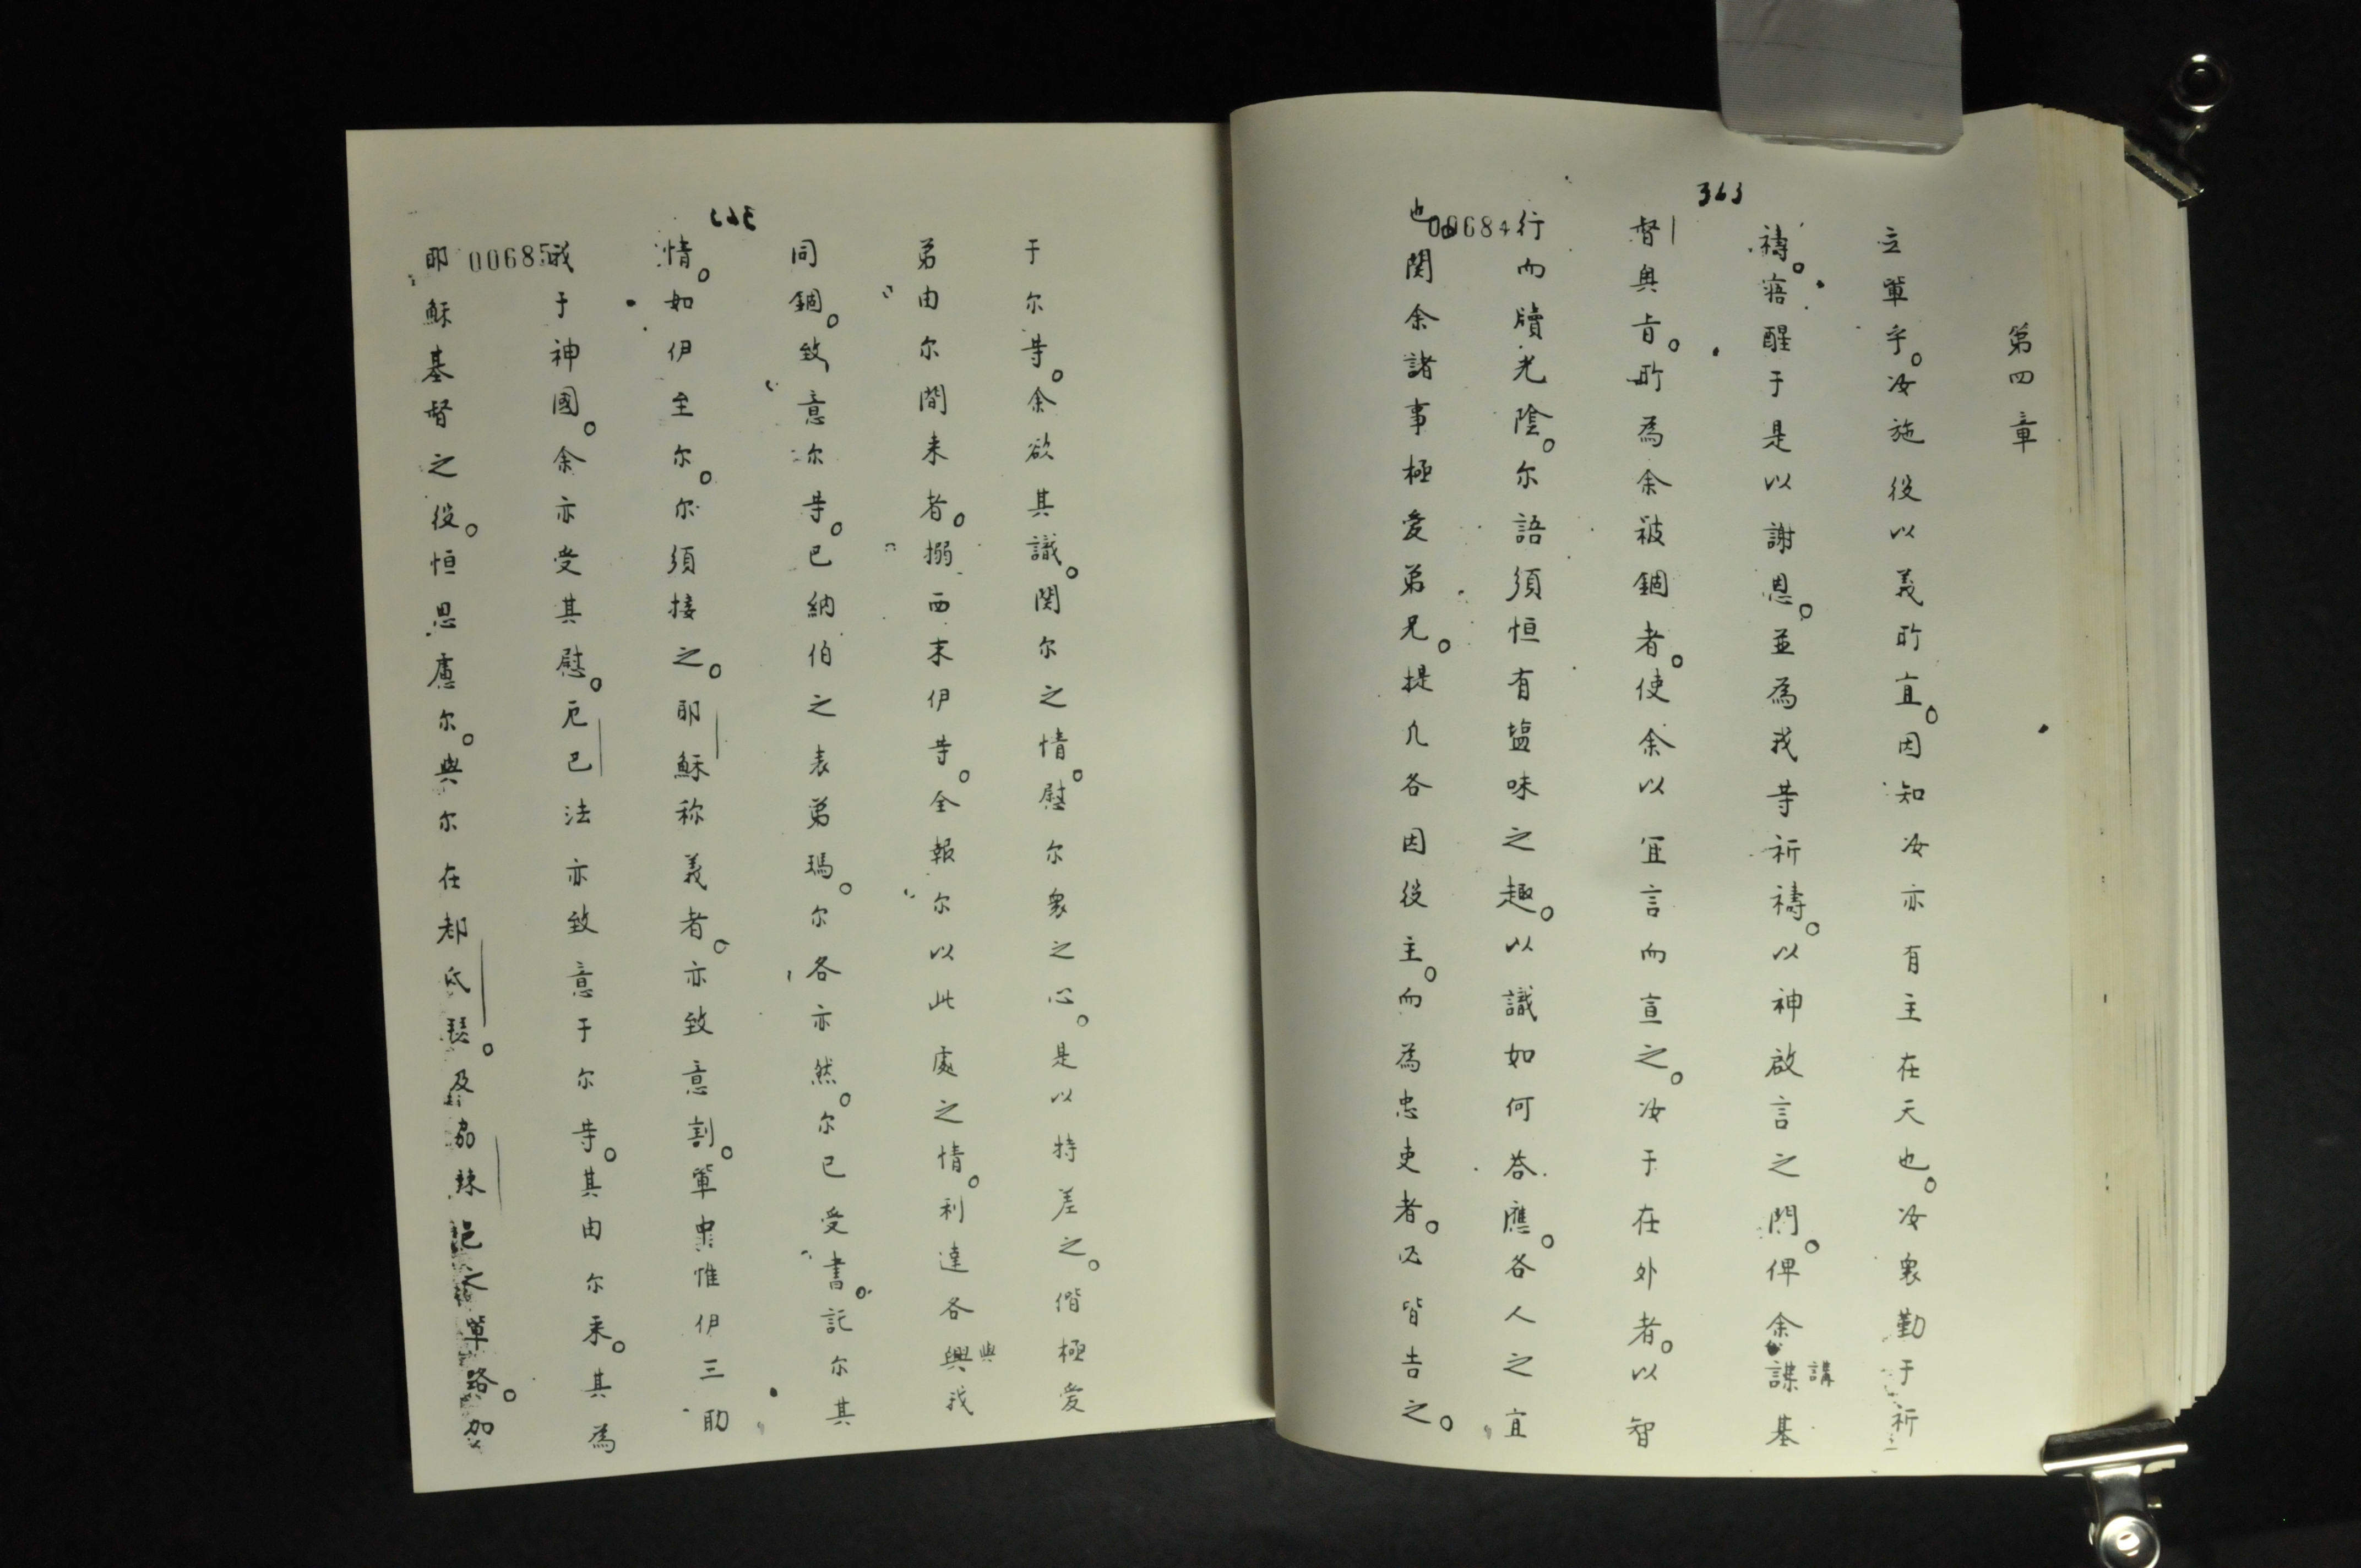 363
第四章
立軰乎。汝施役以義所宜。因知汝亦有主在天也。汝衆勤于祈
禱。寤醒于是以謝恩。並為我等祈禱。以神啟言之門。俾余謀講基
督奥旨。所為余被錮者。使余以宜言而宣之。汝于在外者。以智
行而牘光陰。尔語須恒有塩味之趣。以識如何荅應。各人之宜
00684
也関余諸事極愛弟兄。提几各因役主。而為忠吏者。必皆告之。
于尔等。余欲其識。関尔之情。慰尔衆之心。是以特差之。偕極愛
弟由尔間来者。搦西末伊等。全報尔以此處之情。利達各興與我
同錮。致意尔等。巴納伯之表弟瑪。尔各亦然。尔已受書。記尔其
情。如伊至尔。尔須接之。耶穌称義者。亦致意割。軰中惟伊三助
我于神國。余亦受其慰。厄巴法亦致意于尔等。其由尔来。其為
00685
耶穌基督之役。恒思慮尔。與尔在都氐琵。及協辣 單路。加